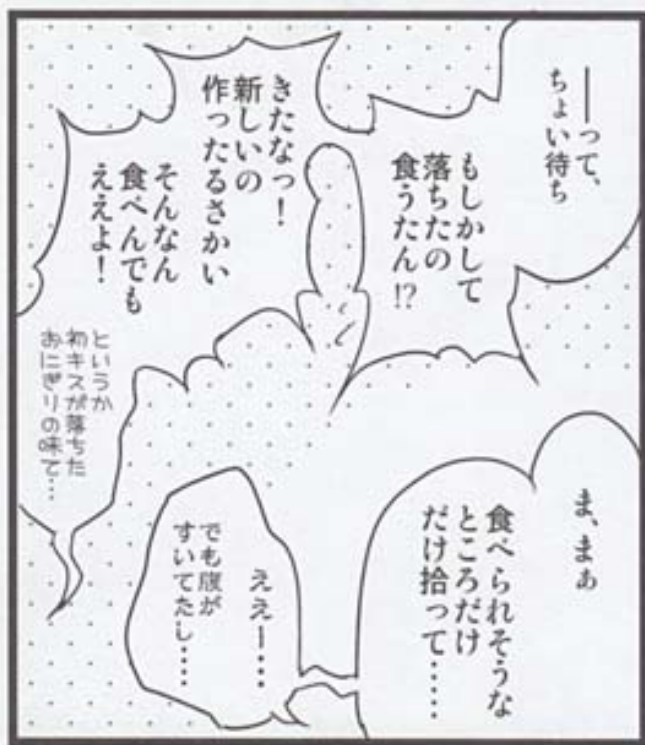 ――って、
ちょい待ち
もしかして
落ちたの
食うたん!?
きたなっ!
新しいの
作ったるさかい
そんなん
食べんでも
ええよ!
というか
初キスが落ちた
おにぎりの味て…
ま、まぁ
食べられそうな
ところだけ
だけ拾って……
ええー…
でも腹が
すいてたし……